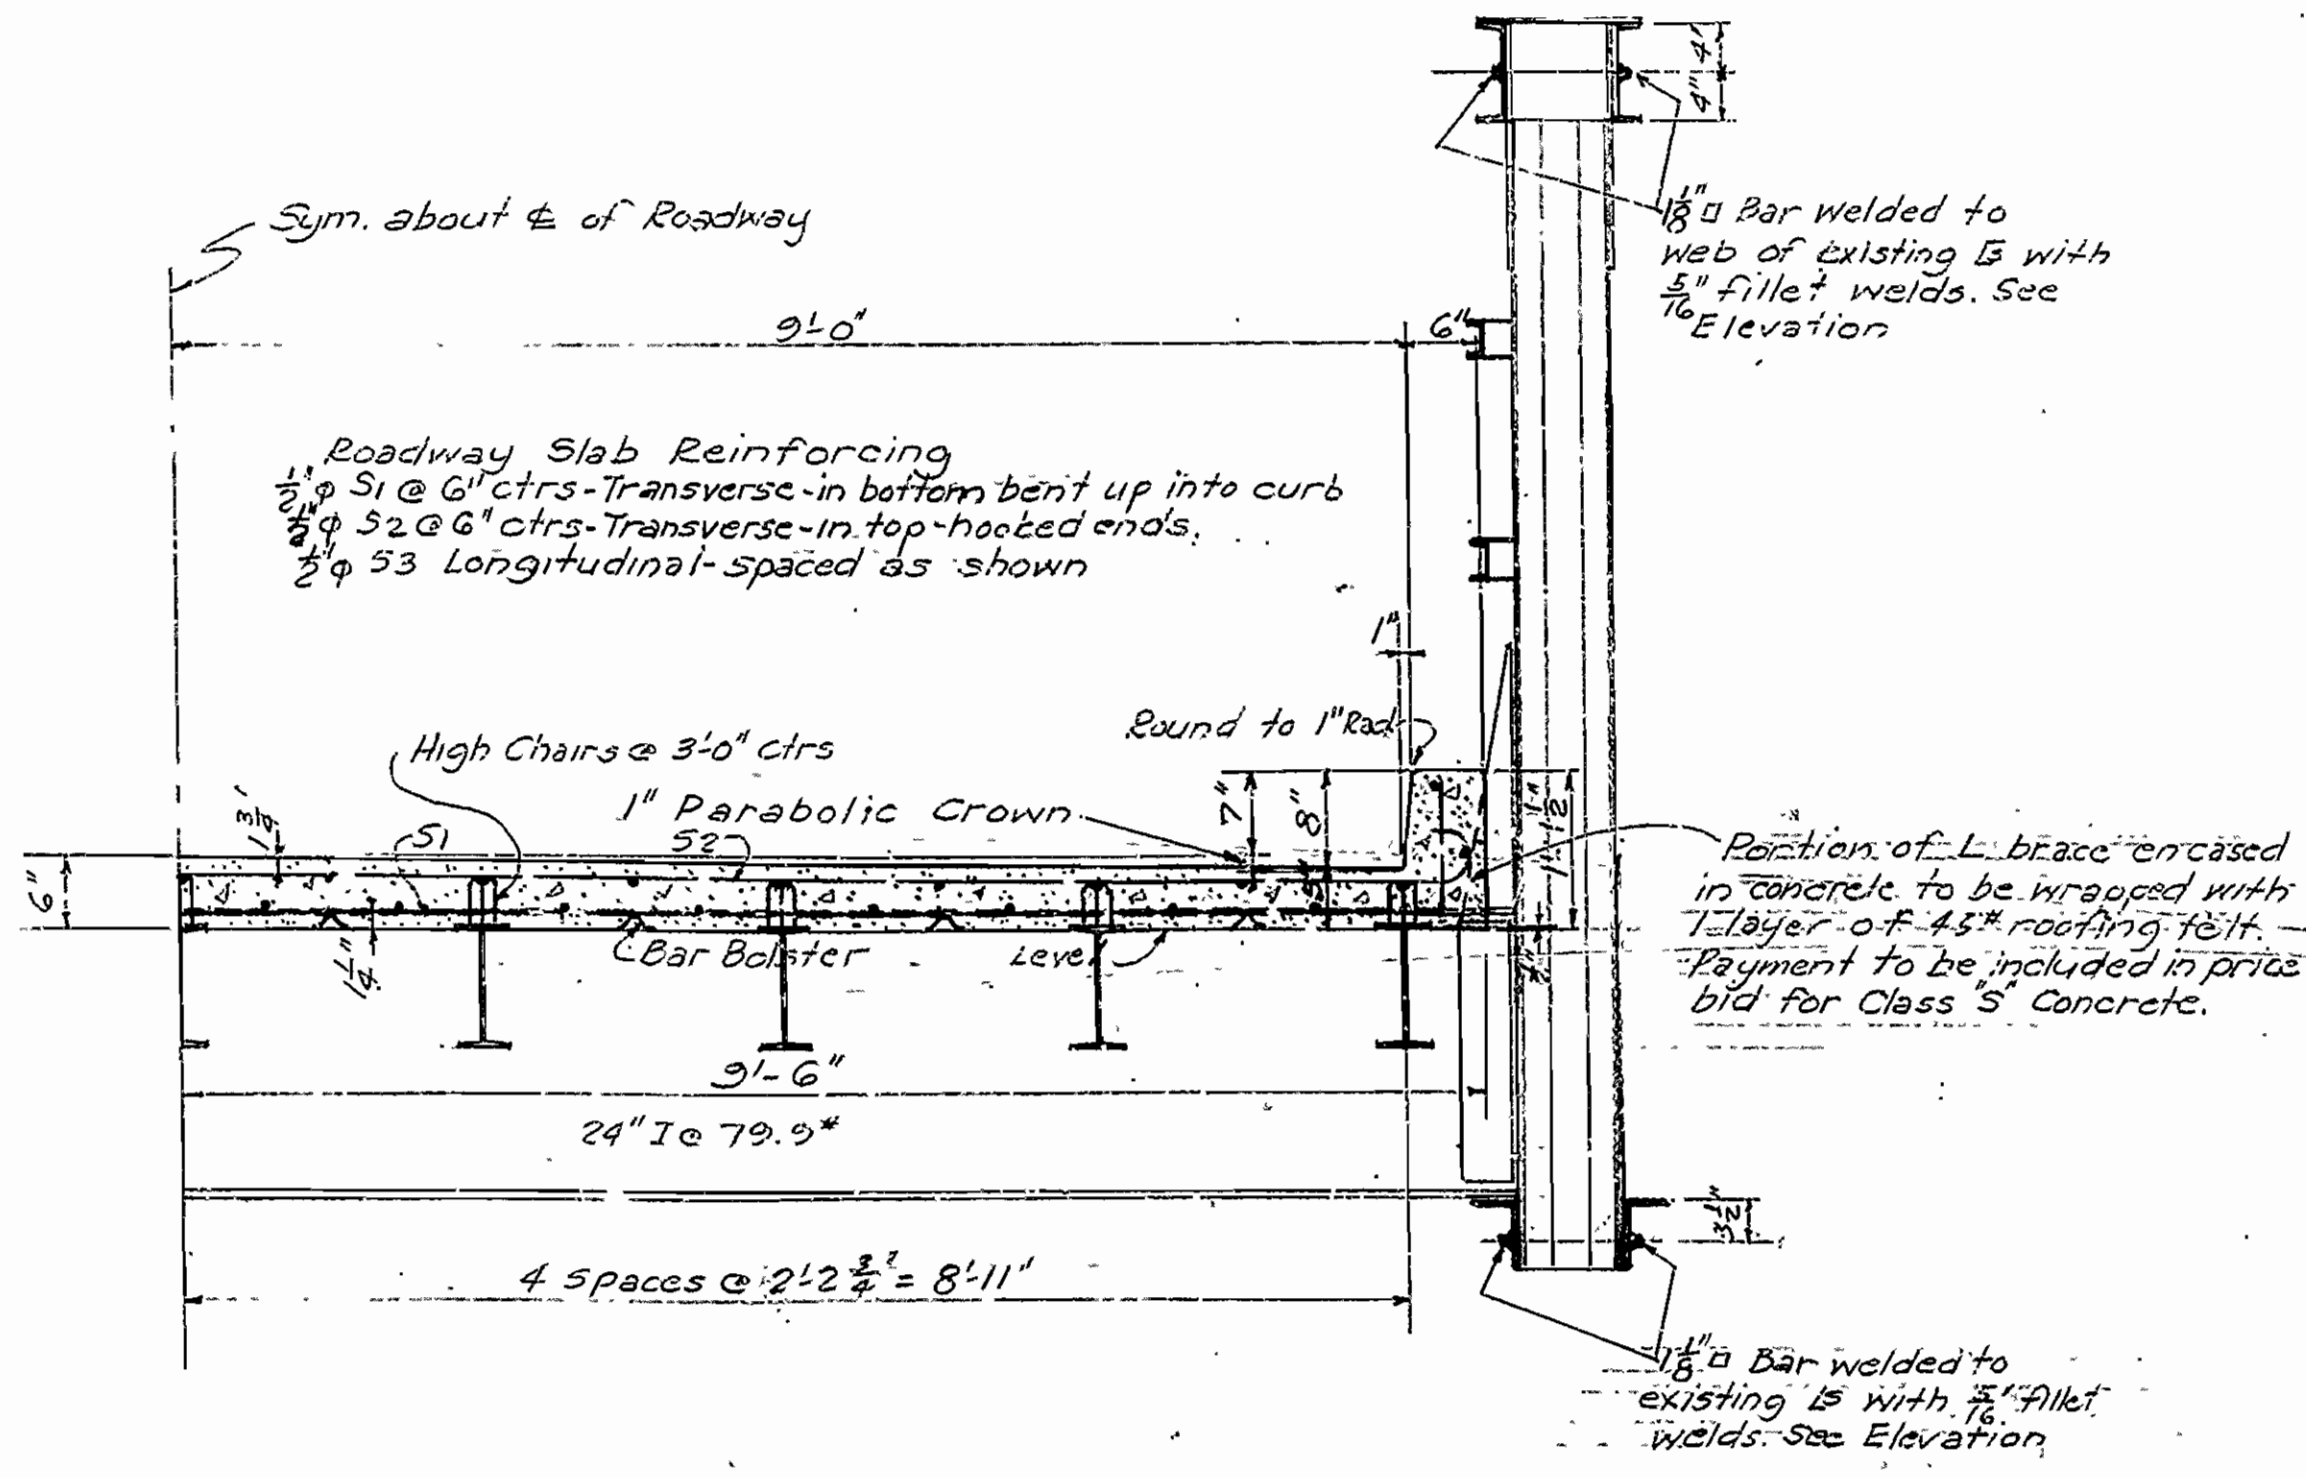 4"
4"
Sym. about ℄ of Roadway
1 1/8" □ Bar welded to
web of existing [s with
5/16" fillet welds. See
Elevation
9'-0"
6"
Roadway Slab Reinforcing
1/2" φ S1 @ 6" ctrs-Transverse-in bottom bent up into curb
1/2" φ S2 @ 6" ctrs-Transverse-in top-hooked ends.
1/2" φ S3 Longitudinal-spaced as shown
1"
Round to 1" Rad
High Chairs @ 3'-0" ctrs
1" Parabolic Crown
1 3/4"
S1
S2
7"
8"
1'-1 1/2"
6"
Portion of L brace encased
in concrete to be wrapped with
1 layer of 45# roofing felt.
Payment to be included in price
bid for Class "S" Concrete.
1 1/4"
Bar Bolster
Level
9'-6"
24" I @ 79.9#
3 1/2"
4 spaces @ 2'-2 3/4" = 8'-11"
1 1/8" □ Bar welded to
existing Ls with 5/16" fillet
welds. See Elevation